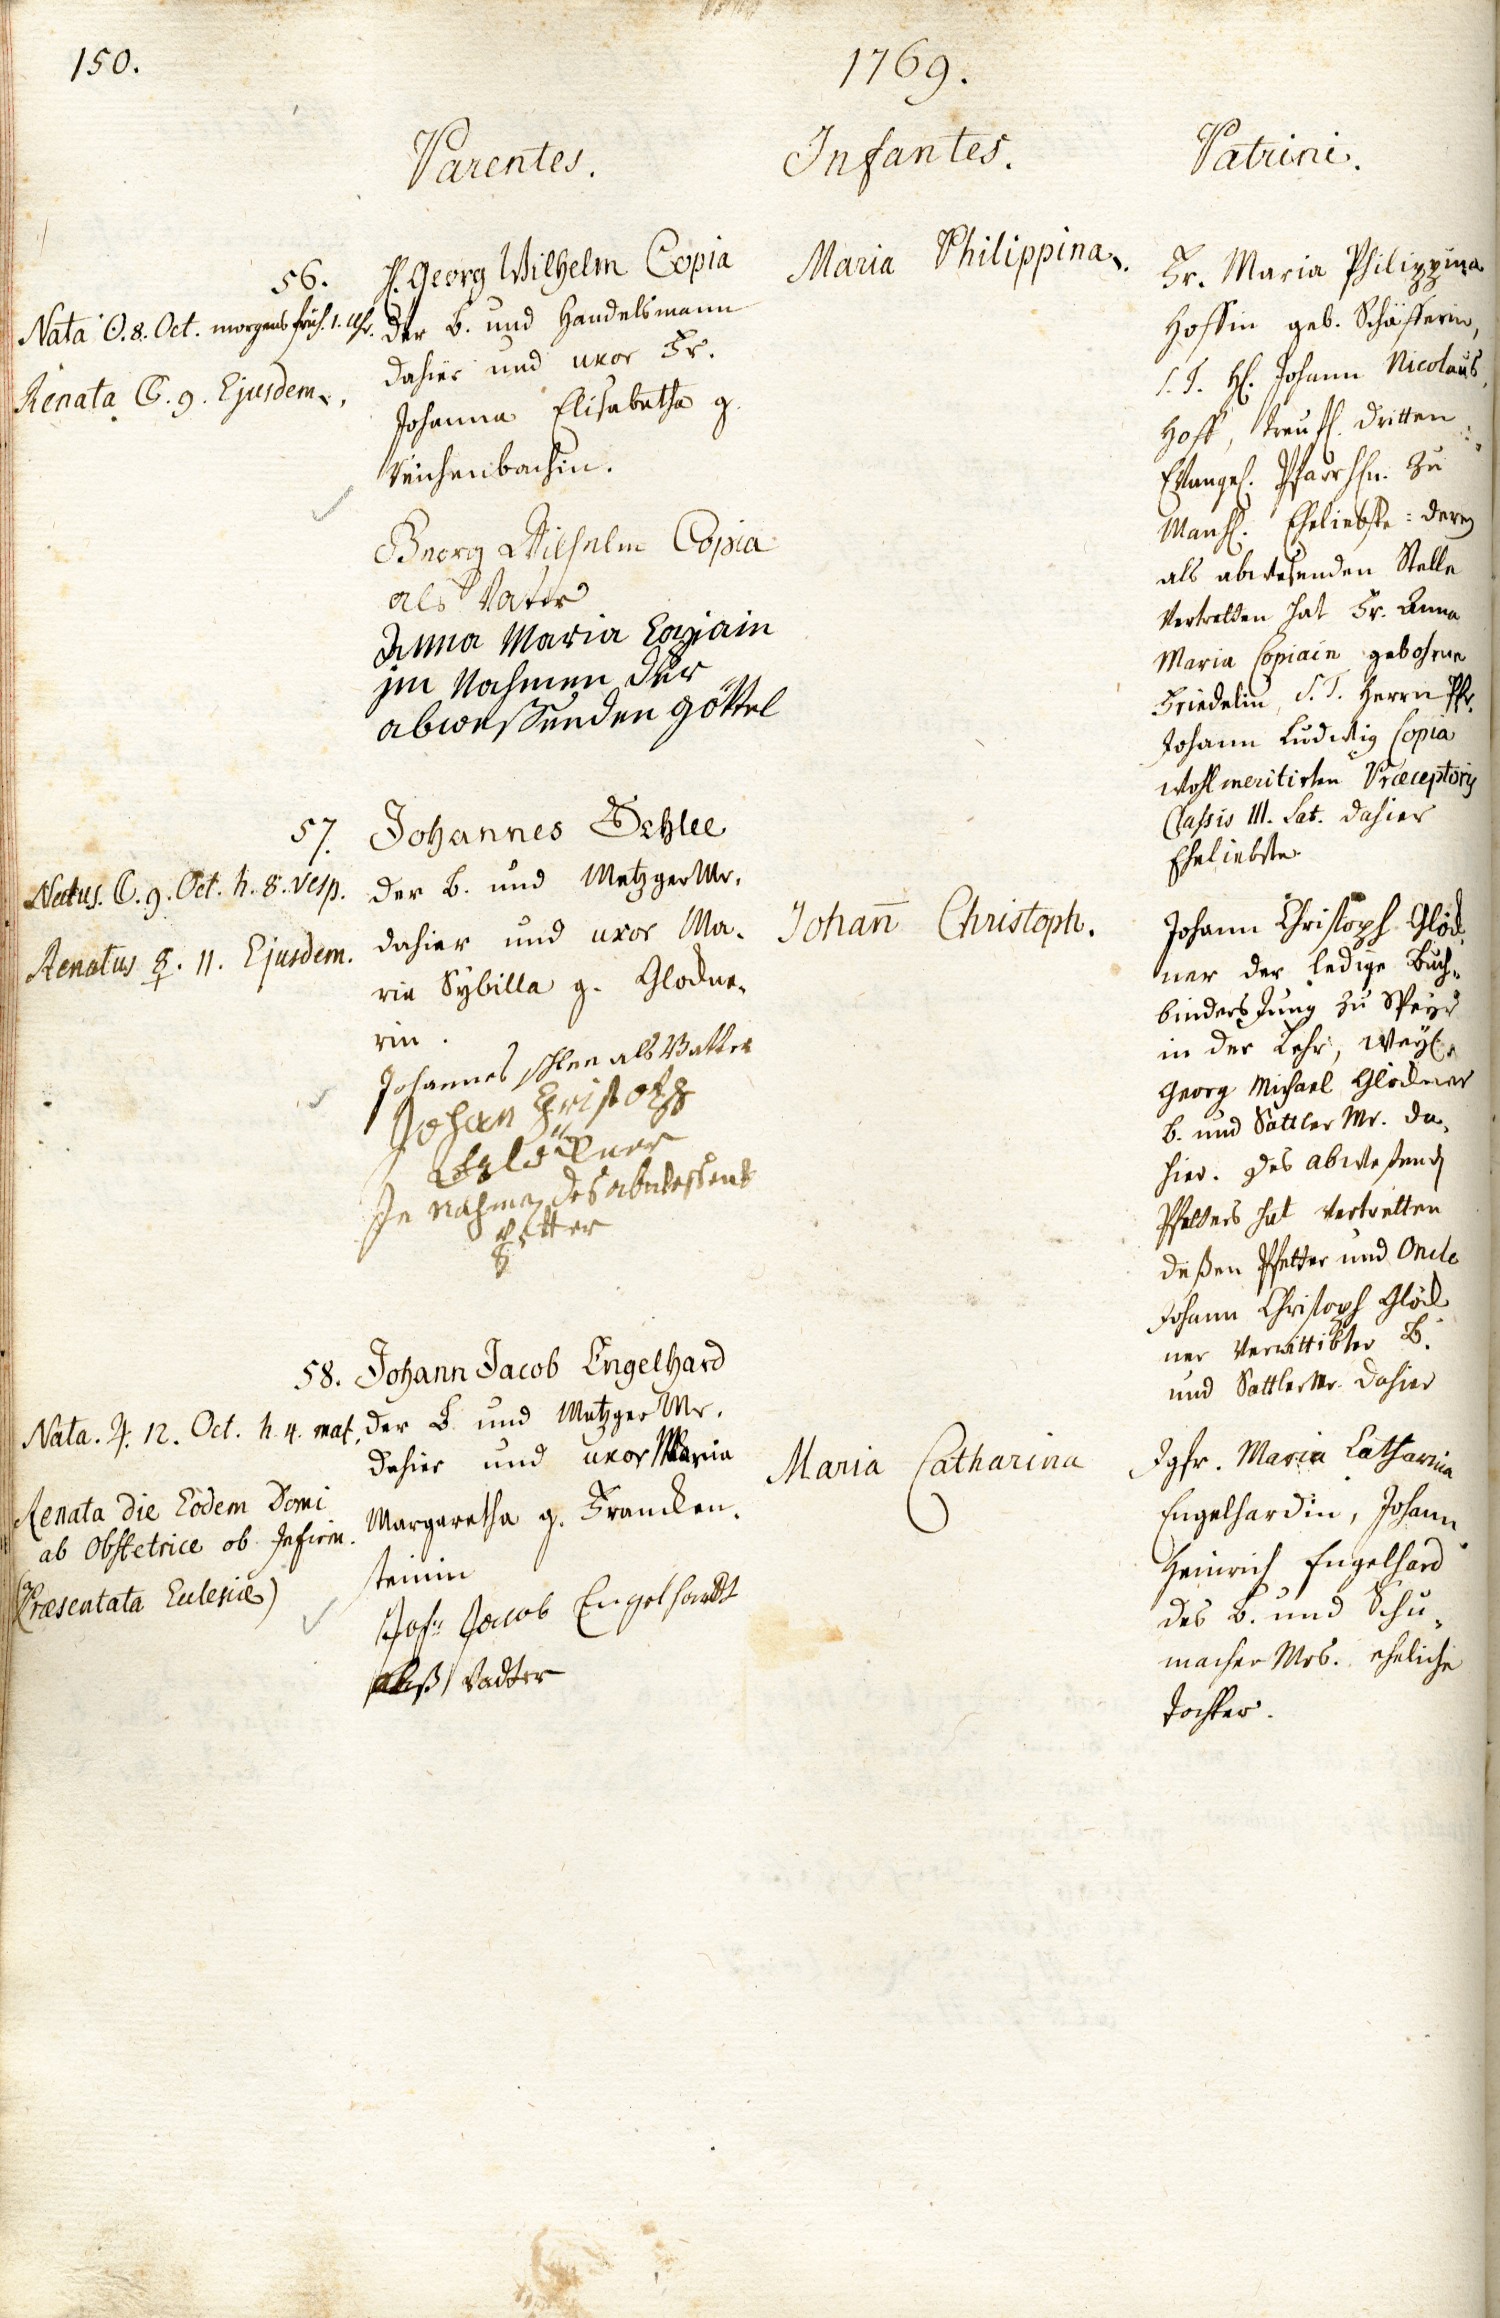 150.
1769.
Parentes.
Infantes.
Patrini.
56.
Nata ☉. 8. Oct. morgens früh. 1. Uhr.
Renata ☾. 9. Ejusdem.
H. Georg Wilhelm Copia
der B. und Handelsmann
dahier und uxor Fr.
Johanna Elisabetha g.
Reichenbachin.
Georg Wilhelm Copia
als Vater
Anna Maria Copiain
im Nahmen der
abwessenden göttel
Maria Philippina.
Fr. Maria Philippina
Hoffin geb. Schäfferin,
S. T. H. Johann Nicolaus
Hoff, treufl. dritten
Evangel. Pfarrhn. zu
Manh. Eheliebste: deren
als abwesenden Stelle
vertretten hat Fr. Anna
Maria Copiain gebohrne
Friedelin, S. T. Herrn Pfr.
Johann Ludwig Copia
wohlmeritirten Præceptoris
Classis III. Lat. dahier
Eheliebste.
57.
Natus. ☾. 9. Oct. h. 8. vesp.
Renatus ☿. 11. Ejusdem.
Johannes Schlee
der B. und Metzger Mr.
dahier und uxor Ma-
ria Sybilla g. Glödne-
rin.
Johannes schlee als Vatter
Johan Christoph
Glöckner
In nahmen des abwessent
petter
Johan̄ Christoph.
Johann Christoph Glöd-
ner der ledige Buch-
binders Jung zu Speyer
in der Lehr, weyl.
Georg Michael Glödner
B. und Sattler Mr. da-
hier. des abwesend
Pfetters hat vertretten
deßen Pfetter und Oncle
Johann Christoph Glöd
ner verwittibter B.
und Sattler Mr. dahier
58.
Nata. ♃. 12. Oct. h. 4. mat.
Renata die Eodem Domi
ab Obstetrice ob Infirm.
(Præsentata Ecclesiæ)
Johann Jacob Engelhard
der B. und Metzger Mr.
dahier und uxor Maria
Margaretha g. Francken-
steinin
Joh: Jacob Engelhardt
alß Vadter
Maria Catharina
Jgfr. Maria Catharina
Engelhardin, Johann
Heinrich Engelhard
des B. und Schu-
macher Mrs. eheliche
Tochter.